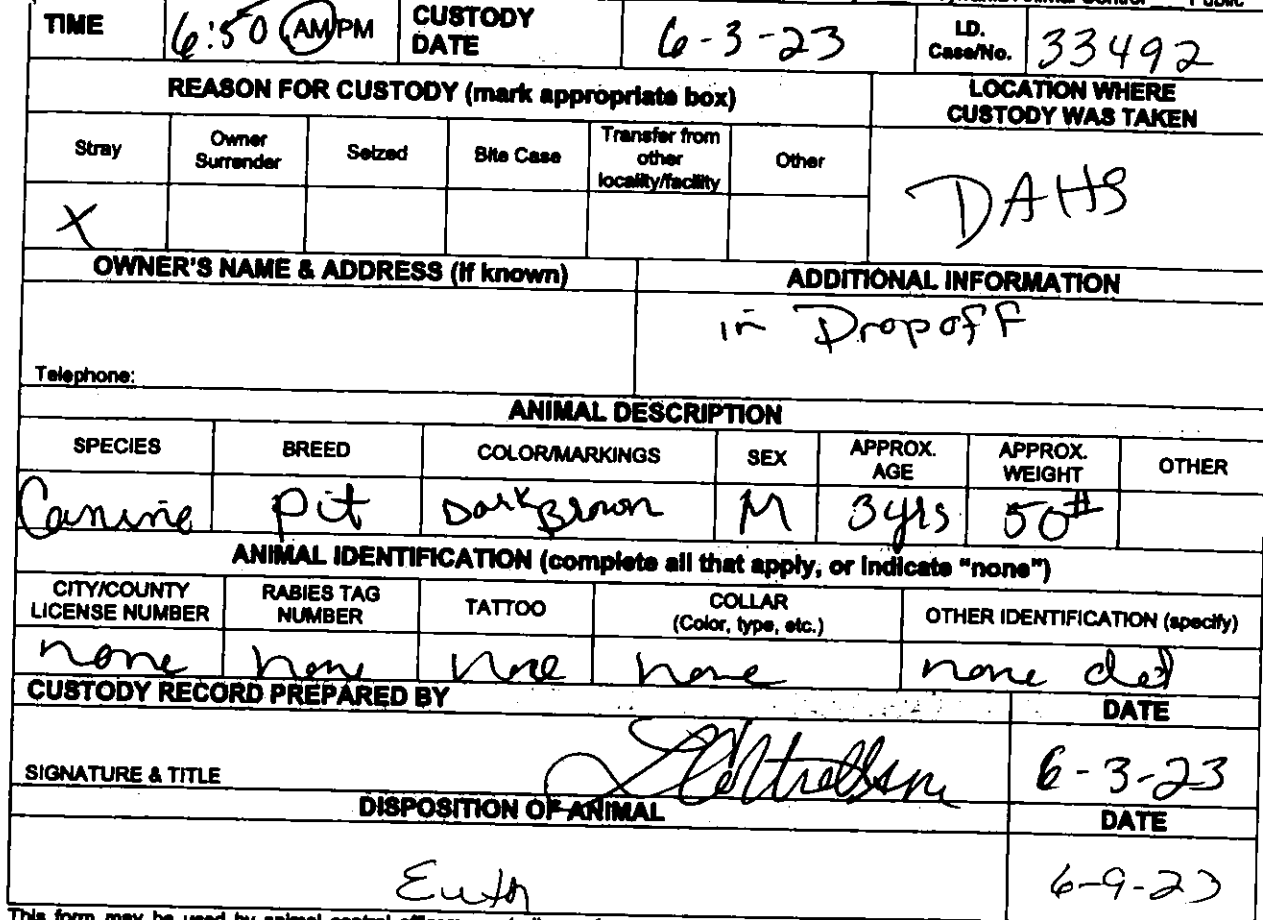 Animal Control Public
TIME 6:50 AM/PM CUSTODY DATE 6-3-23 I.D. Case/No. 33492
REASON FOR CUSTODY (mark appropriate box) LOCATION WHERE CUSTODY WAS TAKEN
Stray Owner Surrender Seized Bite Case Transfer from other locality/facility Other
X DAHS
OWNER'S NAME & ADDRESS (if known) ADDITIONAL INFORMATION
in Dropoff
Telephone:
ANIMAL DESCRIPTION
SPECIES BREED COLOR/MARKINGS SEX APPROX. AGE APPROX. WEIGHT OTHER
Canine Pit Dark Brown M 3yrs 50#
ANIMAL IDENTIFICATION (complete all that apply, or indicate "none")
CITY/COUNTY LICENSE NUMBER RABIES TAG NUMBER TATTOO COLLAR (Color, type, etc.) OTHER IDENTIFICATION (specify)
none none none none none
CUSTODY RECORD PREPARED BY DATE
SIGNATURE & TITLE 6-3-23
DISPOSITION OF ANIMAL DATE
Euth 6-9-23
This form may be used by animal control